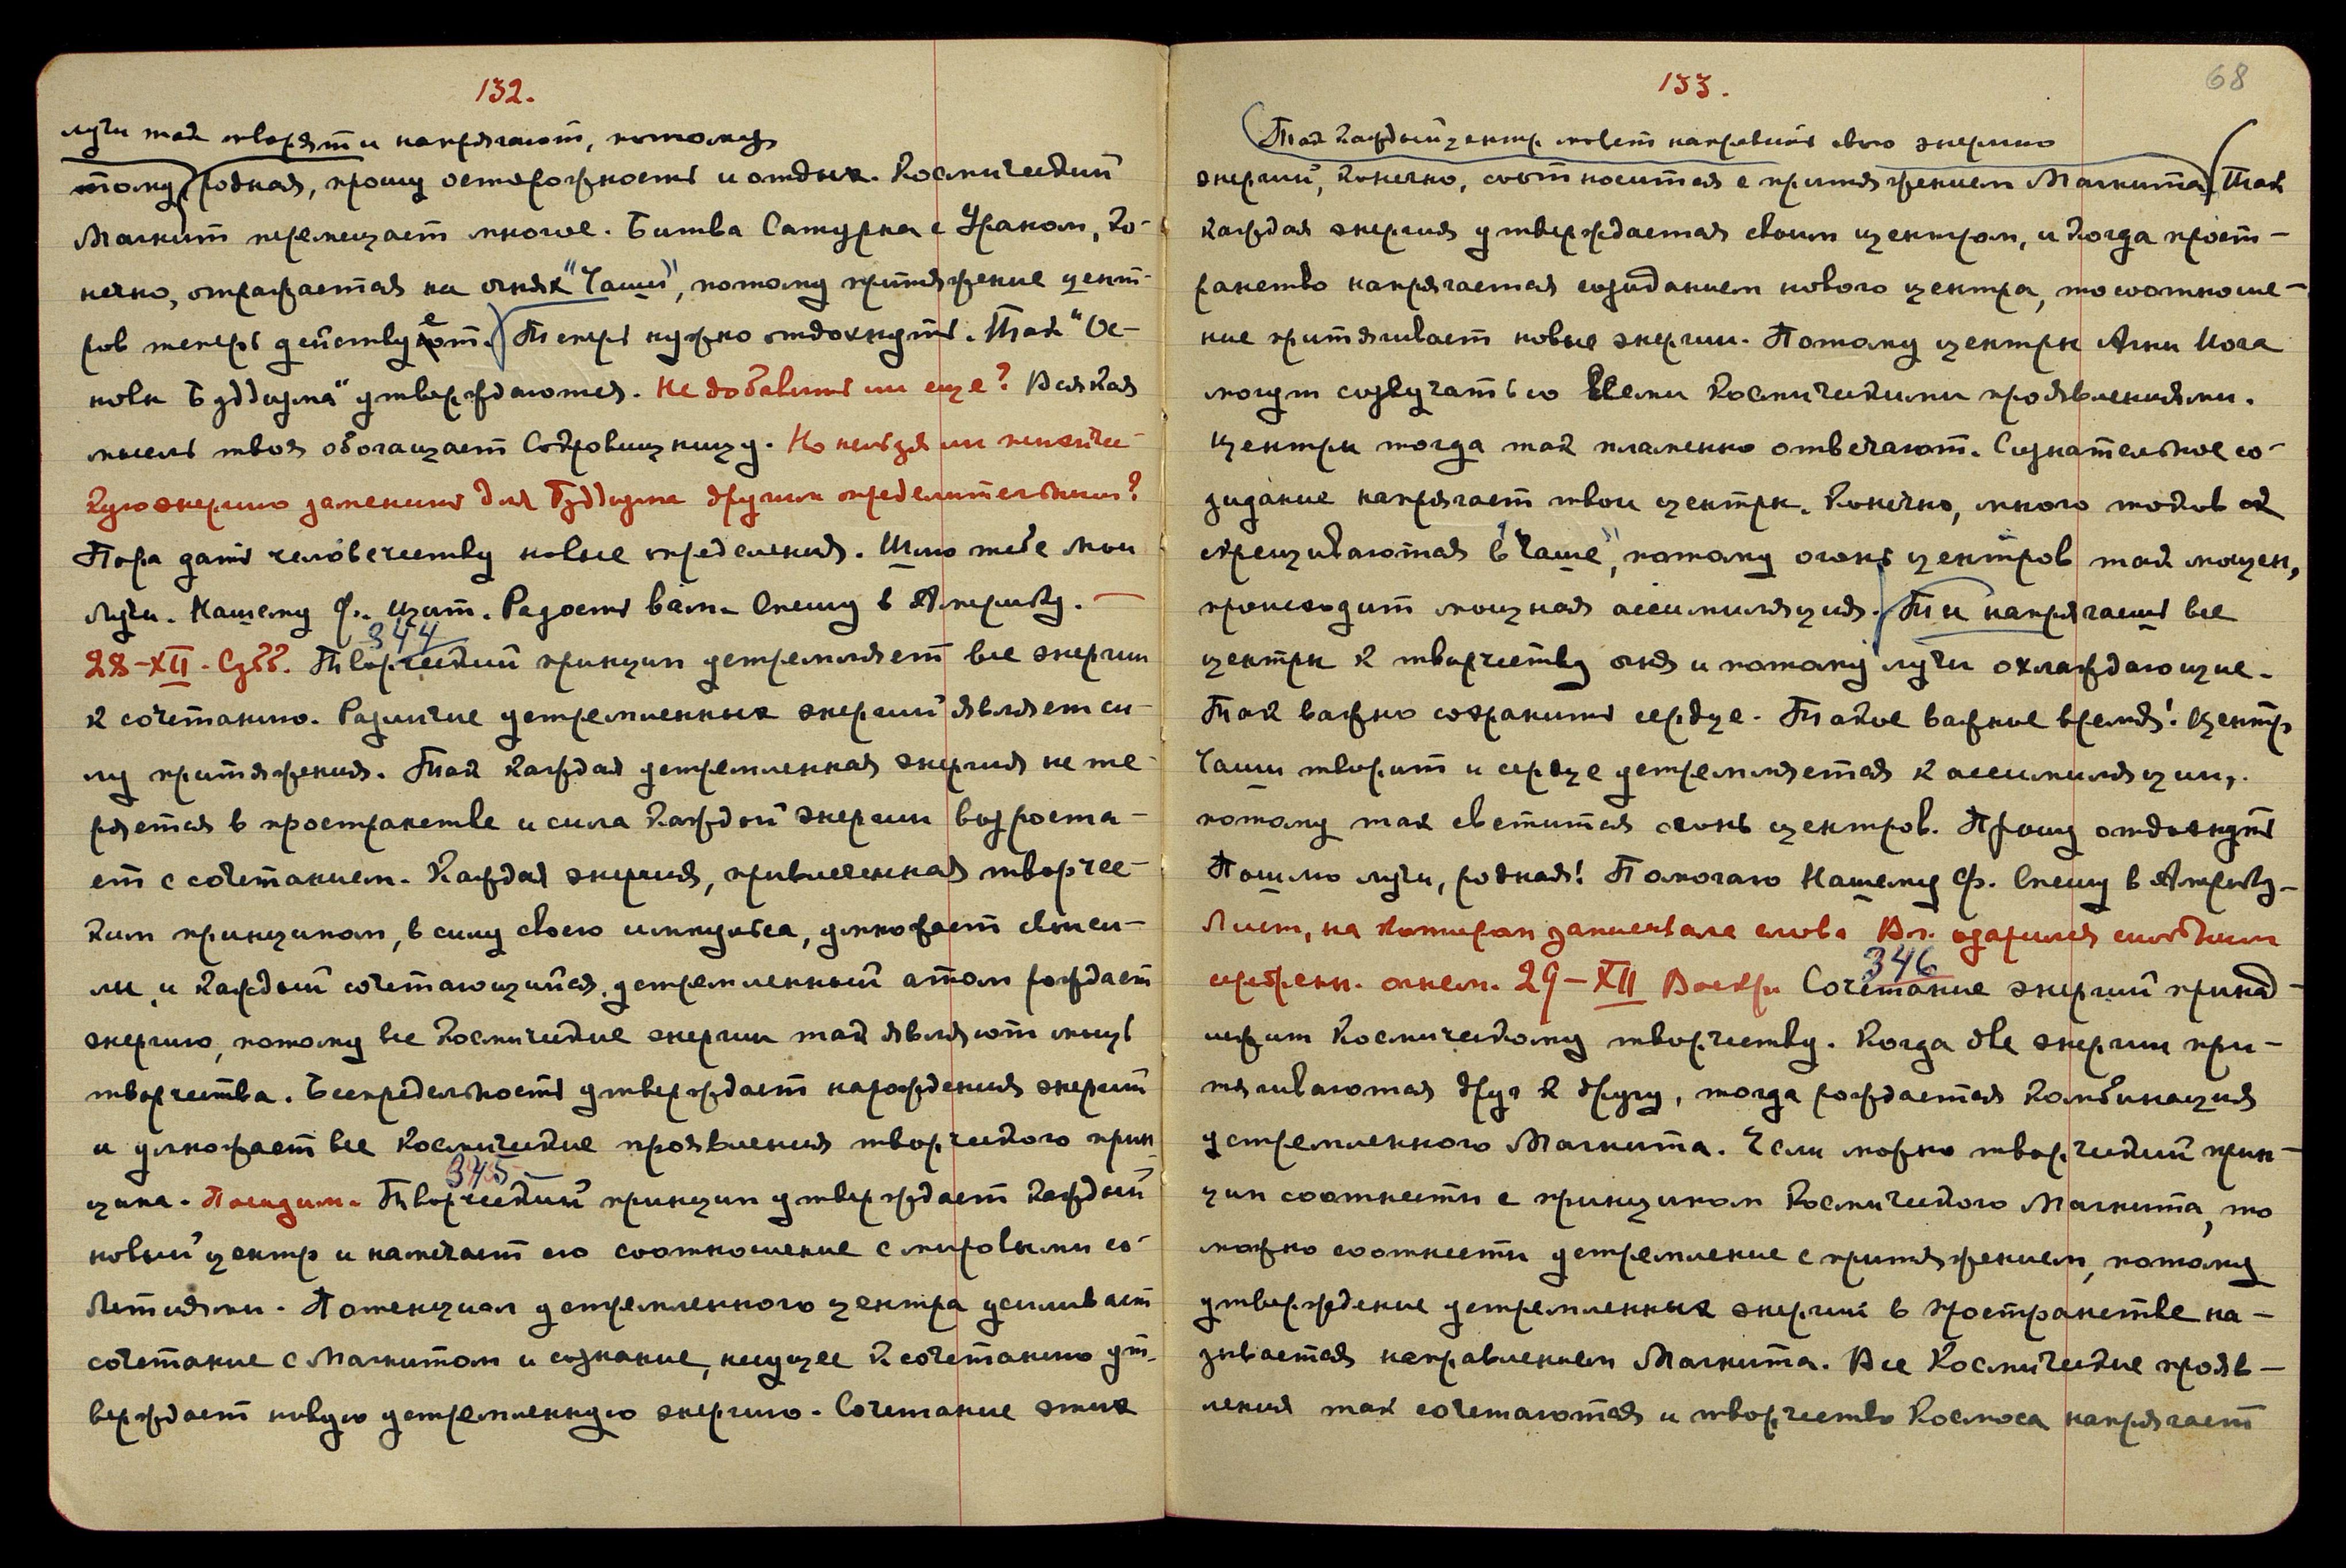 132.
лучи так творят и напрягают, потому
тому родная, прошу осторожность и отдых. Космический
Магнит перемещает многое. Битва Сатурна с Ураном, ко-
нечно, отражается на огнях "Чаши", потому притяжение цент-
ров теперь действует. Теперь нужно отдохнуть. Так "Ос-
новы Буддизма" утверждаются. Не добавить ли еще? Всякая
мысль твоя обогащает Сокровищницу. Но нельзя ли
кую энергию заменить для Буддизма другим определительным?
Пора дать человечеству новые определения. Шлю тебе Мои
Лучи. Нашему Ф. щит. Радость вам. Спешу в Америку. —
344
28-XII. Субб. Творческий принцип устремляет все энергии
к сочетанию. Различие устремленных энергий являет си-
лу притяжения. Так каждая устремленная энергия не те-
ряется в пространстве и сила каждой энергии возроста-
ет с сочетанием. Каждая энергия, привлеченная творчес-
ким принципом, в силу своего импульса, умножает свои си-
лы и каждый сочетающийся, устремленный атом рождает
энергию, потому все Космические энергии так являют мощь
творчества. Беспредельность утверждает нарождения энергий
и умножает все Космические проявления творческого прин-
345 —
ципа. Посидим. Творческий принцип утверждает каждый
новый центр и намечает его соотношение с мировыми со-
бытиями. Потенциал устремленного центра усиливает
сочетание с Магнитом и сознание, несущее к сочетанию ут-
верждает новую устремленную энергию. Сочетание этих
133.
68
Так каждый центр может направить свою энергию
энергий, конечно, соотносится с притяжением Магнита. Так
каждая энергия утверждается своим центром, и когда прост-
ранство напрягается созиданием нового центра, то соотноше-
ние притягивает новые энергии. Потому центры Агни Йога
могут созвучать со всеми Космическими проявлениями.
Центры тогда так пламенно отвечают. Сознательное со-
зидание напрягает твои центры. Конечно, много токов ск
скрещиваются в "Чаше", потому огонь центров так мощен,
происходит мощная ассимиляция. Ты напрягаешь все
центры к творчеству огня и потому лучи охлаждающие.
Так важно сохранить сердце. Такое важное время! Центр
Чаши творит и сердце устремляется к ассимиляции,
потому так светится огонь центров. Прошу отдохнуть
Пошлю лучи, родная! Помогаю Нашему Ф. Спешу в Америку —
Лист, на котором записывала слова Вл. озарился
серебрян. огнем. 29-XII Воскр. Сочетание энергий принад-
346
лежит Космическому творчеству. Когда две энергии при-
тягиваются друг к другу, тогда рождается комбинация
устремленного Магнита. Если можно творческий прин-
цип соотнести с принципом Космического Магнита, то
можно соотнести устремление с притяжением, потому
утверждение устремленных энергий в пространстве на-
зывается направлением Магнита. Все Космические прояв-
ления так сочетаются и творчество Космоса напрягает